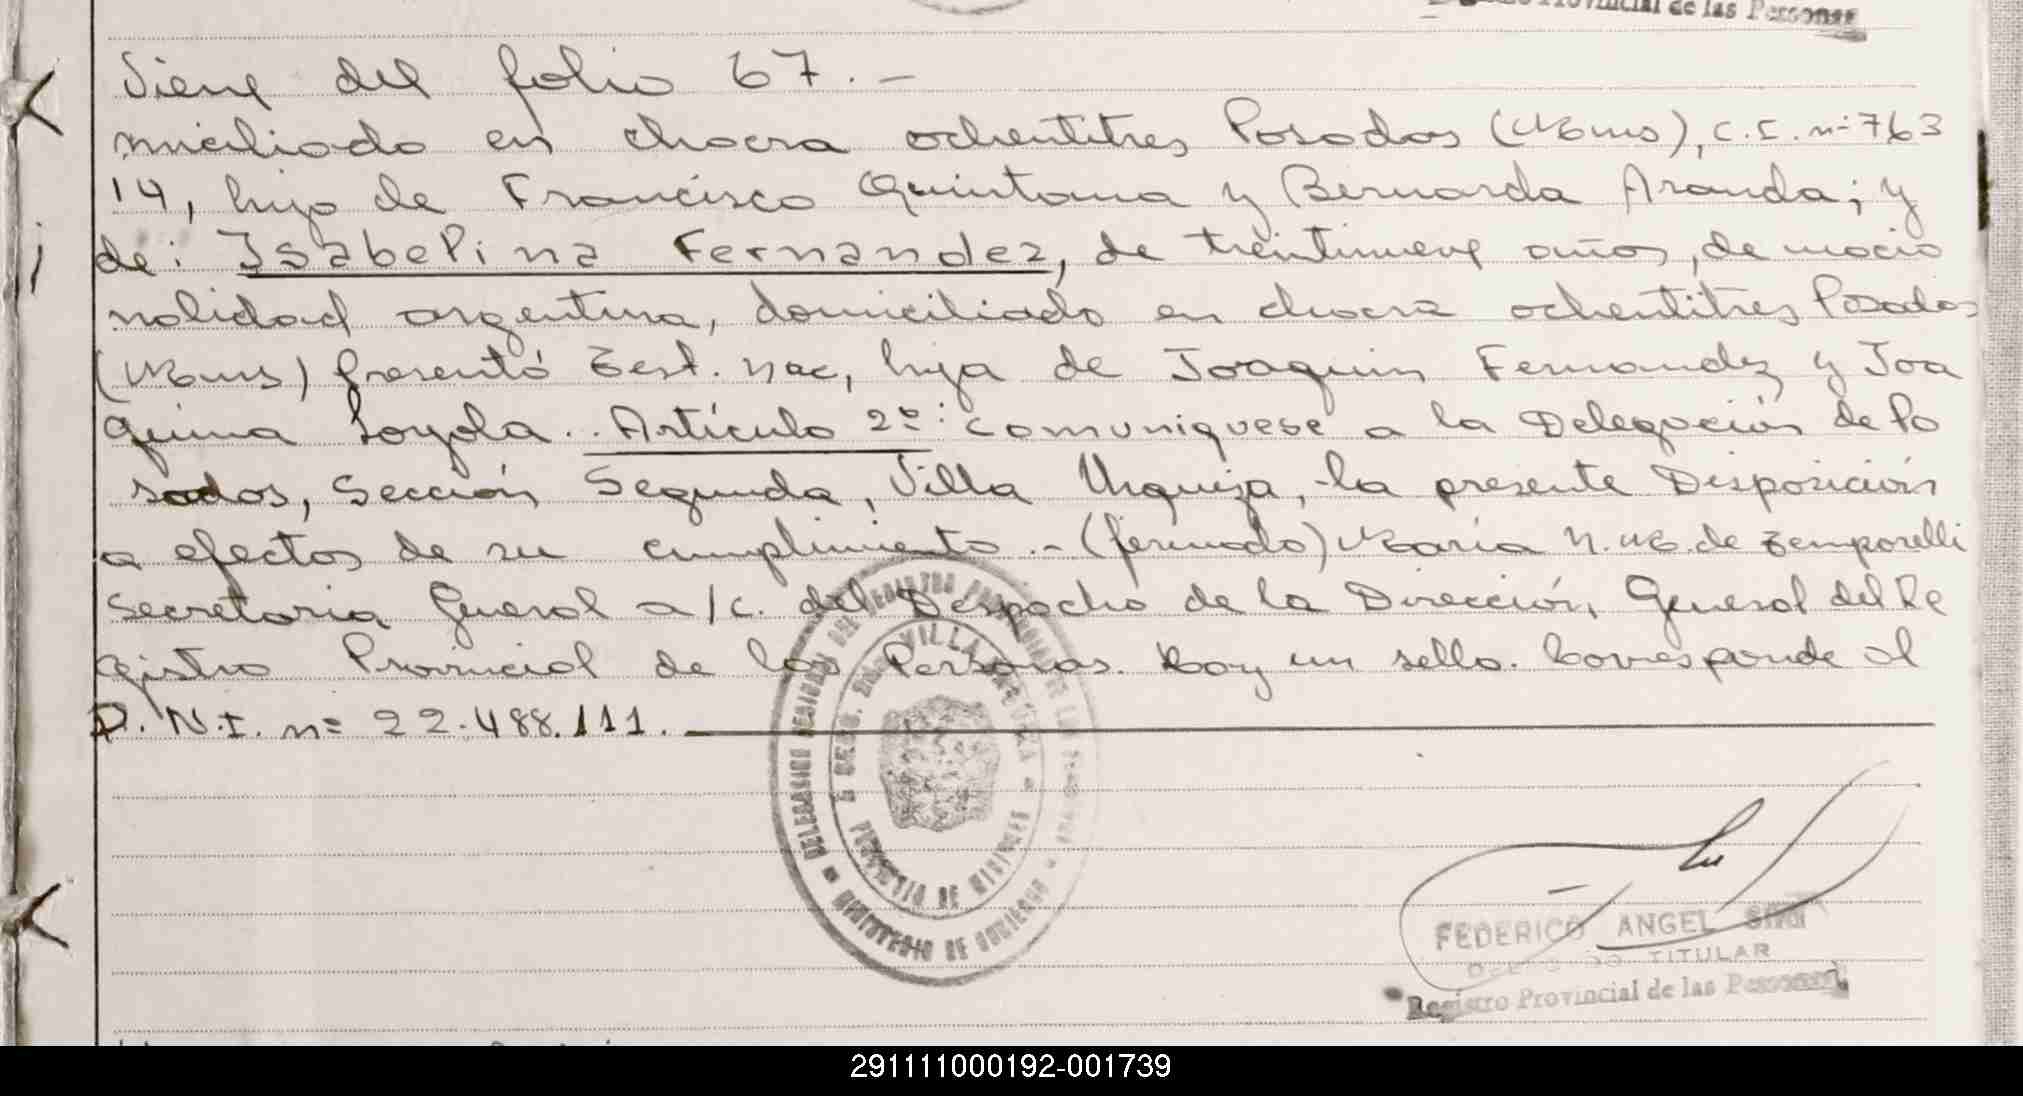 Provincial de las Personas
Viene del folio 67.-
miciliado en chacra ochentitres Posadas (Mnes), C.I. nº 763
14, hijo de Francisco Quintana y Bernarda Aranda; y
de: Isabelina Fernandez, de treintinueve años, de nacio
nalidad argentina, domiciliado en chacra ochentitres Posadas
(Mnes) presentó Test. nac, hija de Joaquin Fernandez y Joa
quina Loyola. Artículo 2º: comuniquese a la Delegación de Po
sadas, Sección Segunda, Villa Urquiza, la presente Disposición
a efectos de su cumplimiento.- (firmado) María N. M. de Temporelli
Secretaria General a/c. del Despacho de la Dirección General del Re
gistro Provincial de las Personas. Hay un sello. Corresponde al
D.N.I. nº 22.488.111.
PROVINCIA DE MISIONES
MINISTERIO DE GOBIERNO
FEDERICO ANGEL
TITULAR
Registro Provincial de las Personas
291111000192-001739